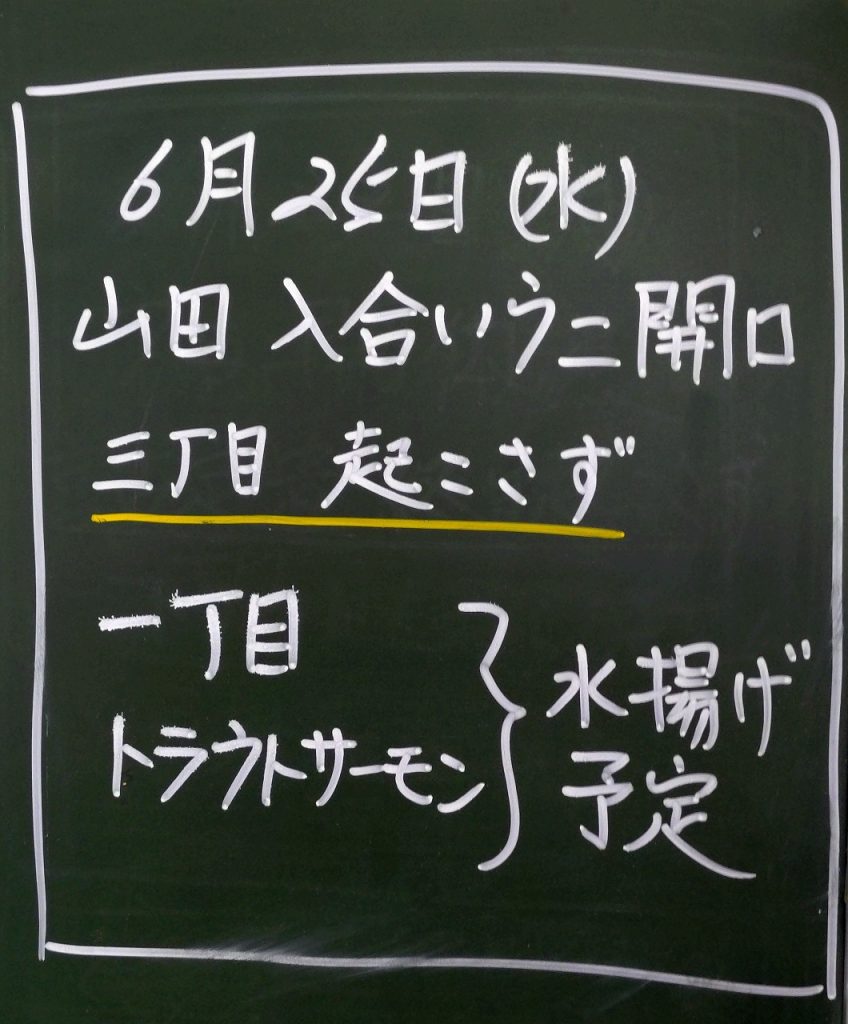 6月25日(水)
山田 入合いウニ開口
三丁目 起こさず
一丁目
トラウトサーモン
水揚げ
予定